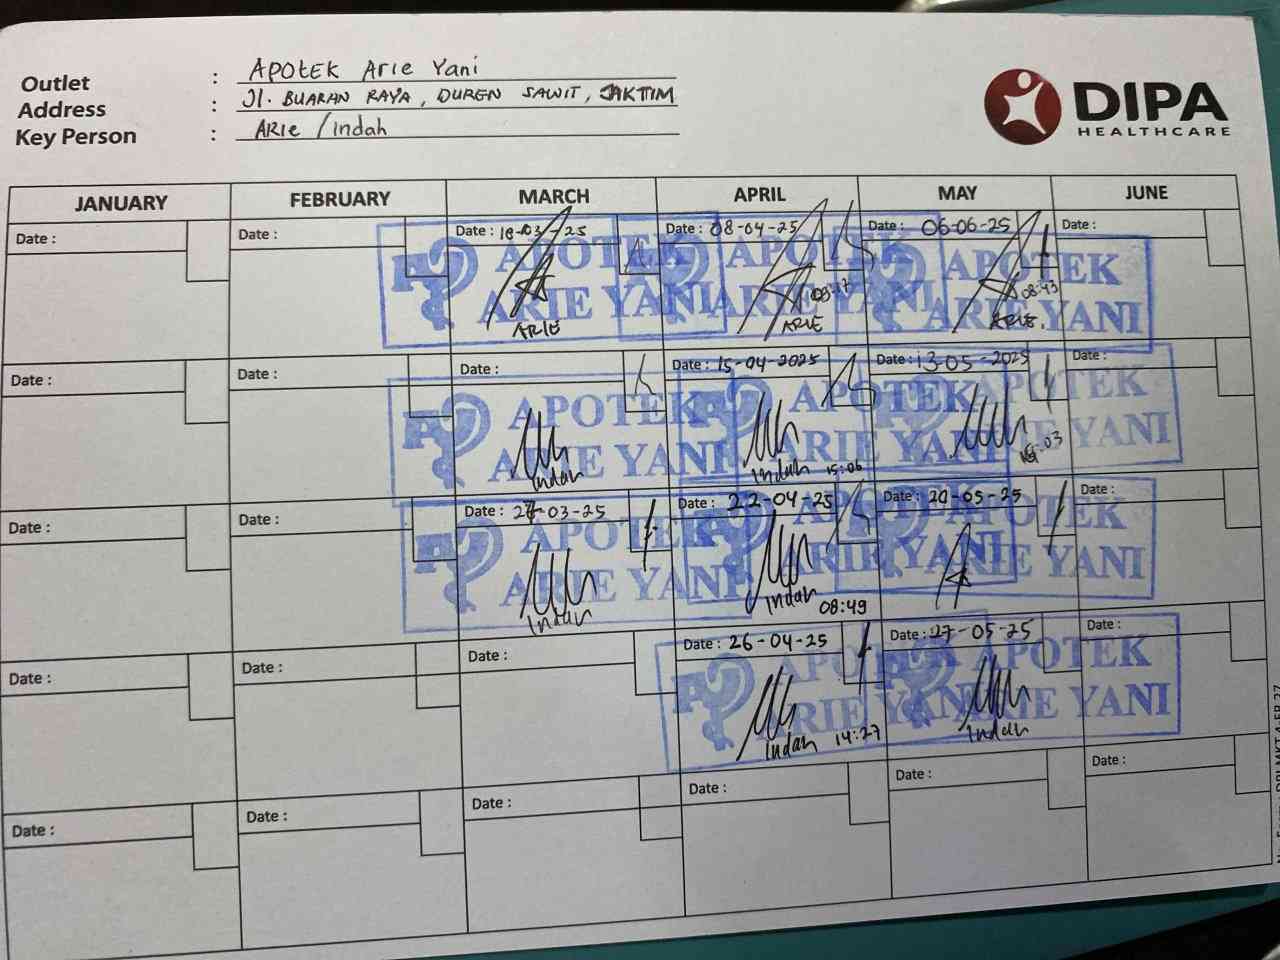 Outlet : APOTEK Arie Yani
Address : Jl. BUARAN RAYA, DUREN SAWIT, JAKTIM
Key Person : ARIE / Indah
DIPA
HEALTHCARE
JANUARY FEBRUARY MARCH APRIL MAY JUNE
Date : Date : Date : 18-03-25 Date : 08-04-25 Date : 06-06-25 Date :
APOTEK APOTEK APOTEK
ARIE YANI ARIE YANI ARIE YANI
08:17 08:43
ARIE ARIE ARIE
Date : Date : Date : Date : 15-04-2025 Date : 13-05-2025 Date :
APOTEK APOTEK APOTEK
ARIE YANI ARIE YANI ARIE YANI
Indah Indah 15:06
Date : Date : Date : 27-03-25 Date : 22-04-25 Date : 20-05-25 Date :
APOTEK APOTEK APOTEK
ARIE YANI ARIE YANI ARIE YANI
Indah Indah 08:49
Date : Date : Date : Date : 26-04-25 Date : 27-05-25 Date :
APOTEK APOTEK
ARIE YANI ARIE YANI
Indah 14:27 Indah
Date : Date : Date : Date : Date : Date :